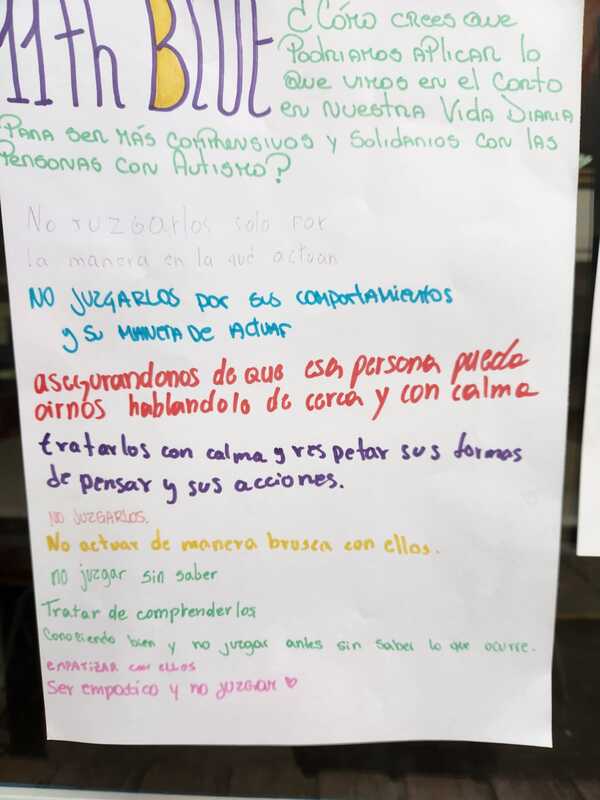 11th BLUE
¿CÓMO CREES QUE
PODRIAMOS APLICAR lo
QUE VIMOS EN EL CORTO
EN NUESTRA VIDA DIARIA
PARA SER MÁS COMPRENSIVOS Y SOLIDARIOS CON LAS
PERSONAS CON AUTISMO?
No juzgarlos solo por
la manera en la qué actuan
NO JUZGARLOS por sus COMPORTAMIENTOS
y su MANERA DE ACTUAR
asegurandonos de que esa persona pueda
oirnos hablandolo de cerca y con calma
tratarlos con calma y respetar sus formas
de pensar y sus acciones.
NO JUZGARLOS.
No actuar de manera brusca con ellos.
no juzgar sin saber
Tratar de comprenderlos
Conociendo bien y no juzgar antes sin saber lo que ocurre.
EMPATIZAR con ellos
Ser empatico y no juzgar ♡